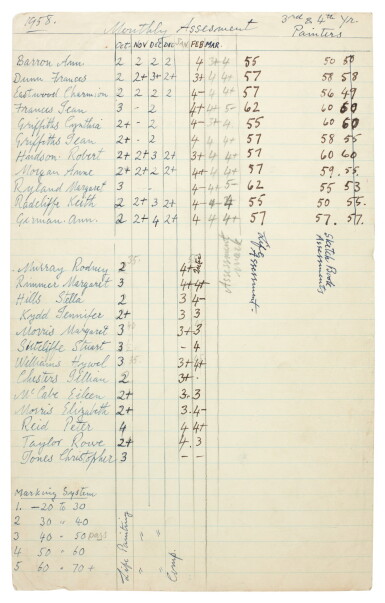 1958. Monthly Assessment 3rd & 4th Yr
Painters
Oct. NOV DEC DEC JAN FEB MAR.
Barron Ann 2 2 2 2 4 3+ 4 55 50 50
Dunn Frances 2 2+ 3+ 2+ 3+ 4 4+ 57 58 58
Eastwood Charmion 2 2 2 2 4- 4 4+ 57 56 49
Frances Jean 3 - 2 4 4+ 5- 62 60 60
Griffiths Cynthia 2+ - 2 4 4- 3+ 55 60 60
Griffiths Jean 2+ - 2 4 4 4+ 57 58 55
Hudson Robert 2+ 2+ 3 2+ 3+ 4 4+ 57 60 60
Morgan Anne 2+ 2+ 2 2+ 4- 4 4+ 57 59. 55
Ryland Margaret 3 - 4- 4 5- 62 55 53
Radcliffe Keith 2 2+ 3 2+ 4 4 4 55 50 55.
Garman. Ann. 2 2+ 4 2+ 4 4 4+ 57 57. 57.
Assessment
Life Assessment
Sketch Book Assessments
Murray Rodney 2 35 4+
Rimmer Margaret 3 4+ 4+
Hills Setta 2 3 4-
Kydd Jennifer 2+ 3 3
Morris Margaret 3 40 3+ 3
Sutcliffe Stuart 3 - 4
Williams Hywel 3 35 3+ 4+
Chesters Gillian 2 3+
McCabe Eileen 2+ 3. 3
Morris Elizabeth 2+ 3. 4-
Reid Peter 4 4 4+
Taylor Rowe 2+ 4. 3
Jones Christopher 3 - -
Marking System
1. -20 to 30
2 30 " 40
3 40 - 50 pass
4 50 " 60
5 60 - 70 +
Life Painting
" "
Comp.